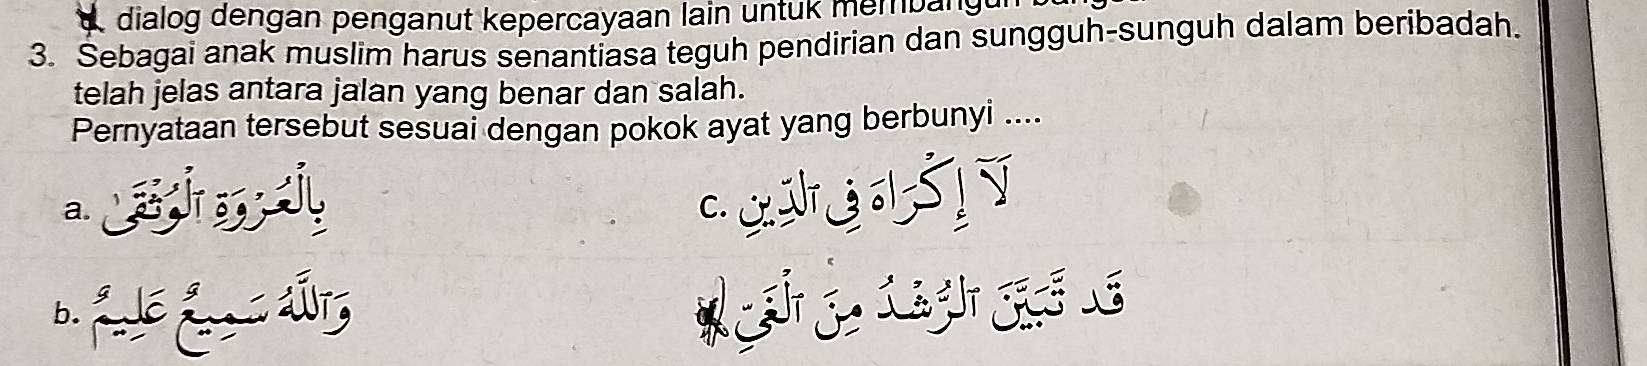 dialog dengan penganut kepercayaan lain untuk
3. Sebagai anak muslim harus senantiasa teguh pendirian dan sungguh-sunguh dalam beribadah.
telah jelas antara jalan yang benar dan salah.
Pernyataan tersebut sesuai dengan pokok ayat yang berbunyi ....
a. بِالْعُرْوَةِ الْوُثْقَىٰ
c. لَآ إِكْرَاهَ فِى الدِّينِ
b. وَاللَّهُ سَمِيعٌ عَلِيمٌ
قَد تَّبَيَّنَ الرُّشْدُ مِنَ الْغَيِّ